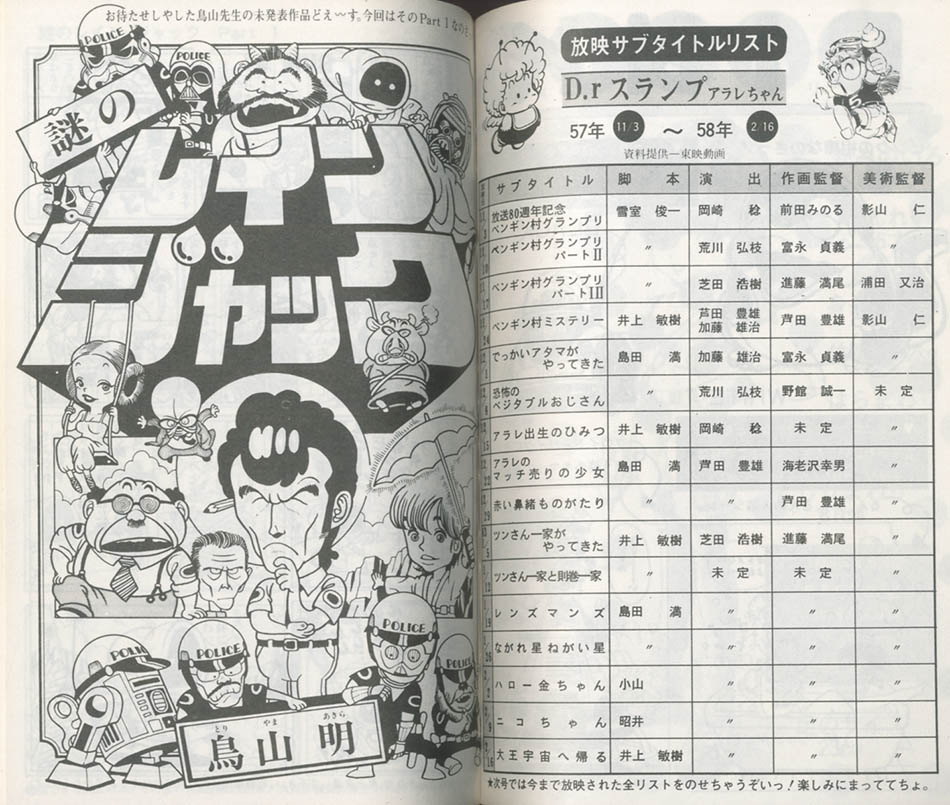 お待たせしやした鳥山先生の未発表作品どえ〜す。今回はそのPart 1なのさ。
POLICE
POLICE
謎の
レイン
ジャック
POLICE
POLICE
POLICE
POLICE
とり やま あきら
鳥山 明
放映サブタイトルリスト
D.rスランプアラレちゃん
57年 11/3 〜 58年 2/16
資料提供—東映動画
サブタイトル 脚本 演出 作画監督 美術監督
放送80週年記念
ペンギン村グランプリ 雪室 俊一 岡崎 稔 前田みのる 影山 仁
ペンギン村グランプリ
パートII 〃 荒川 弘枝 富永 貞義 〃
ペンギン村グランプリ
パートIII 〃 芝田 浩樹 進藤 満尾 浦田 又治
ペンギン村ミステリー 井上 敏樹 芦田 豊雄 芦田 豊雄 影山 仁
加藤 雄治
でっかいアタマが
やってきた 島田 満 加藤 雄治 富永 貞義 〃
恐怖の
ベジタブルおじさん 〃 荒川 弘枝 野館 誠一 未定
アラレ出生のひみつ 井上 敏樹 岡崎 稔 未定 〃
アラレの
マッチ売りの少女 島田 満 芦田 豊雄 海老沢幸男 〃
赤い鼻緒ものがたり 〃 〃 芦田 豊雄 〃
ツンさん一家が
やってきた 井上 敏樹 芝田 浩樹 進藤 満尾 〃
ツンさん一家と則巻一家 〃 未定 未定 〃
レンズマンズ 島田 満 〃 〃 〃
ながれ星ねがい星 〃 〃 〃
ハロー金ちゃん 小山 〃 〃 〃
ニコちゃん 昭井 〃 〃 〃
大王宇宙へ帰る 井上 敏樹 〃 〃 〃
★次号では今まで放映された全リストをのせちゃうぞいっ！楽しみにまっててちょ。